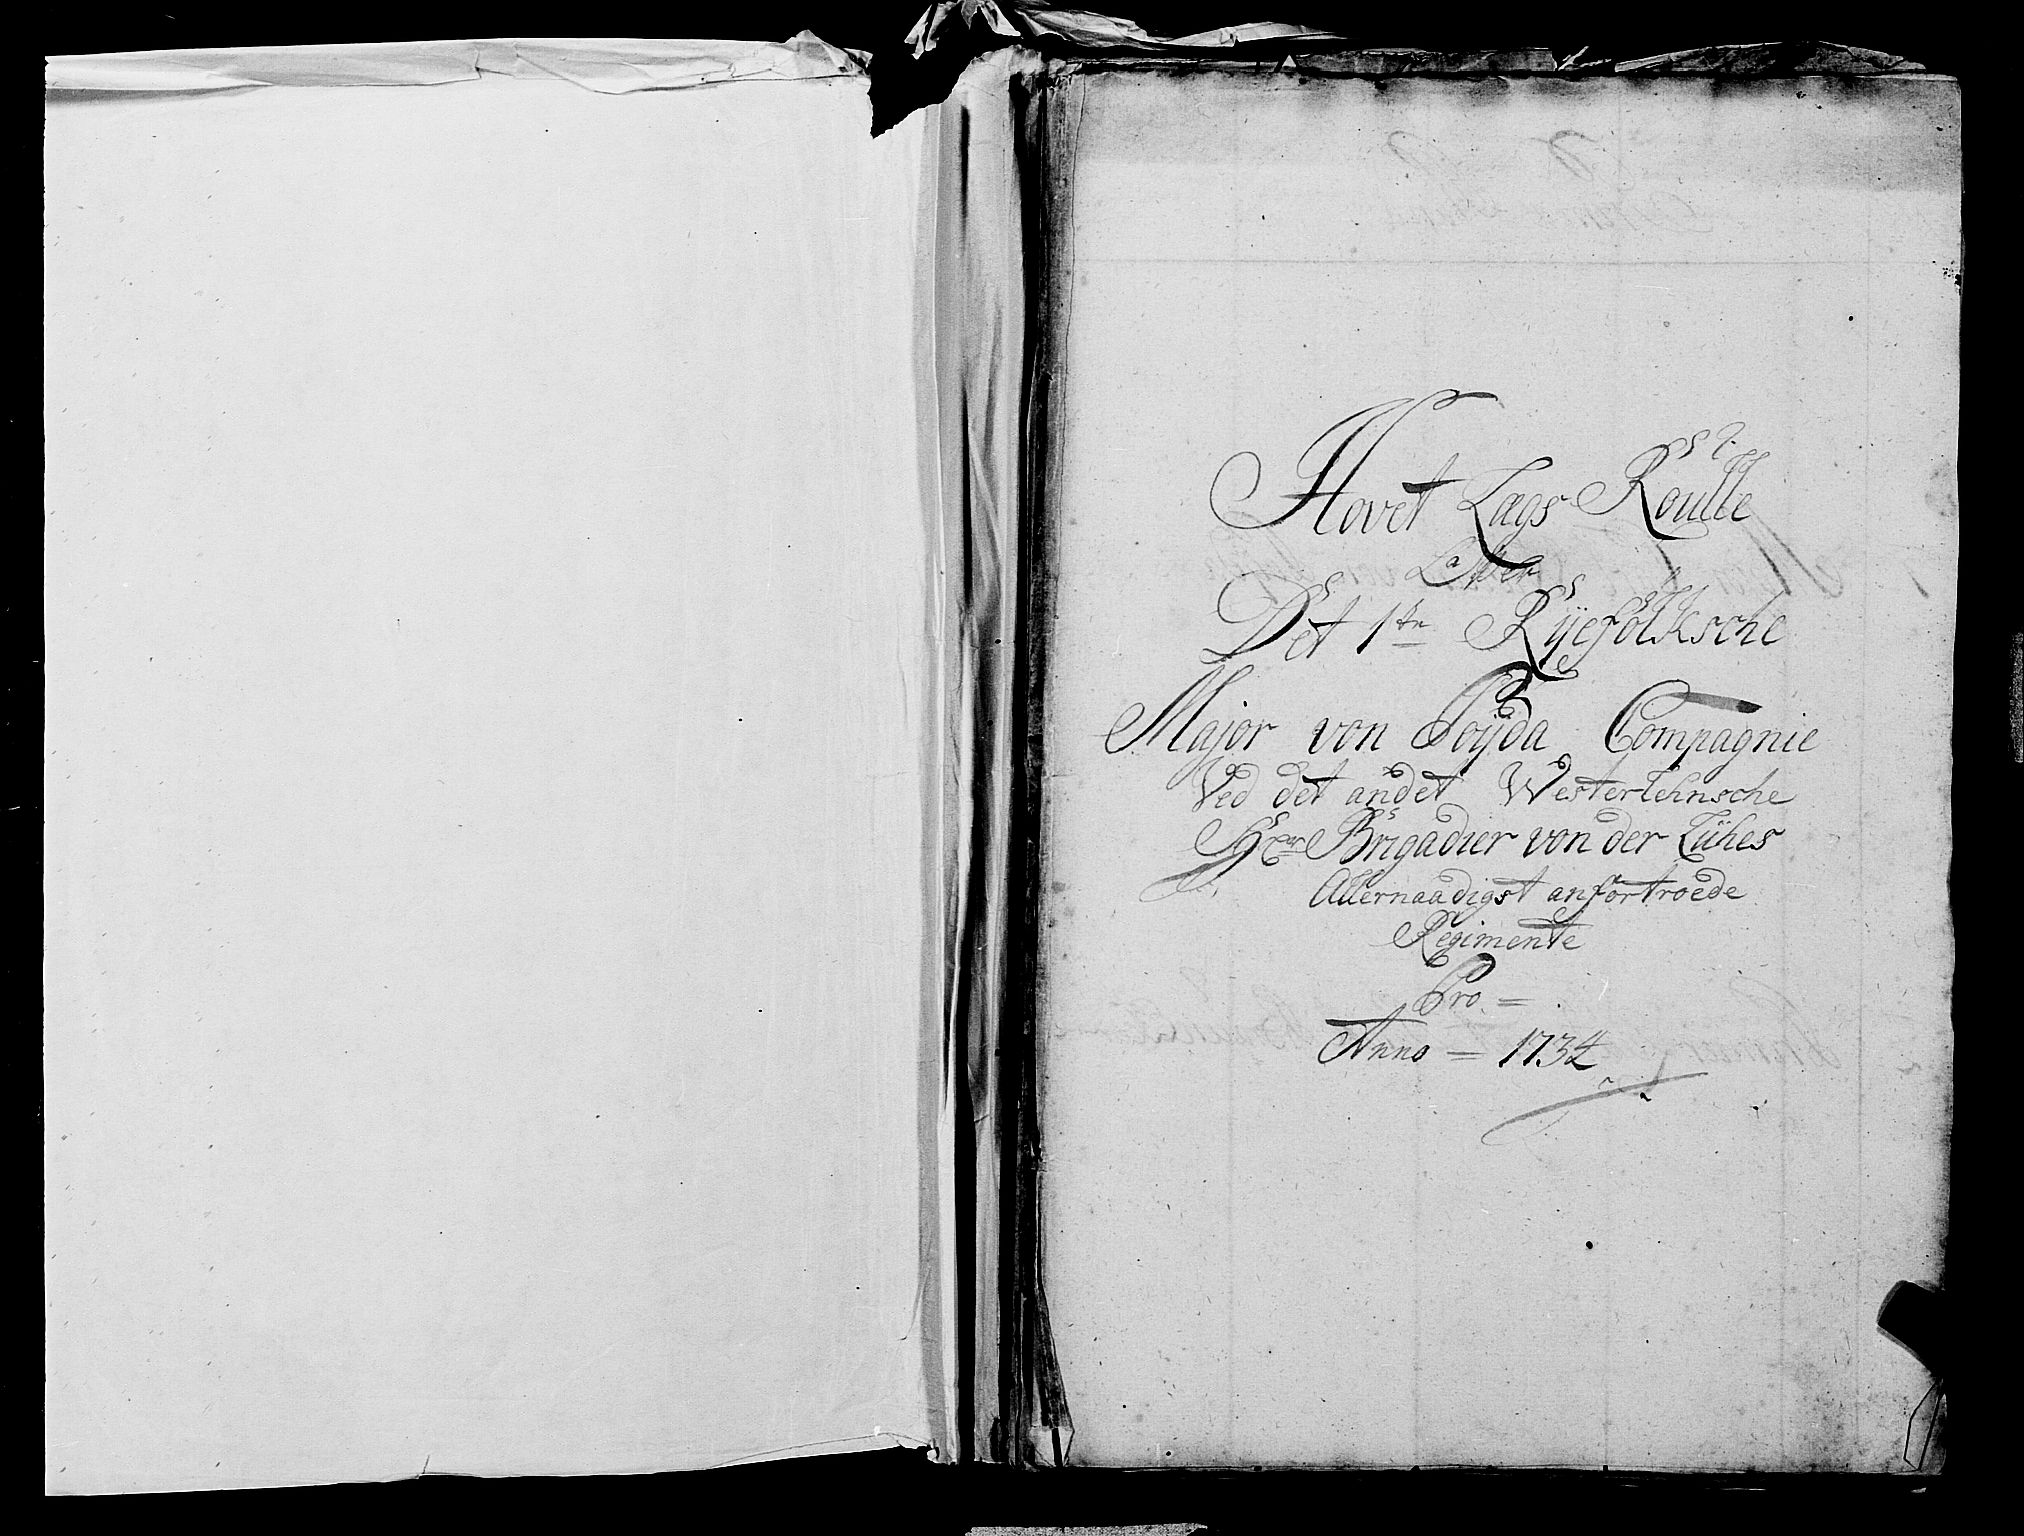 Hovet Lægs Roulle
Over
Det 1ste Ryefolksche
Major von Poÿda Compagnie
Ved det andet Westerlehnsche
Hr Brigadier von der Lühes
Allernaadigst anfortroede
Regimente
Pro =
Anno = 1734